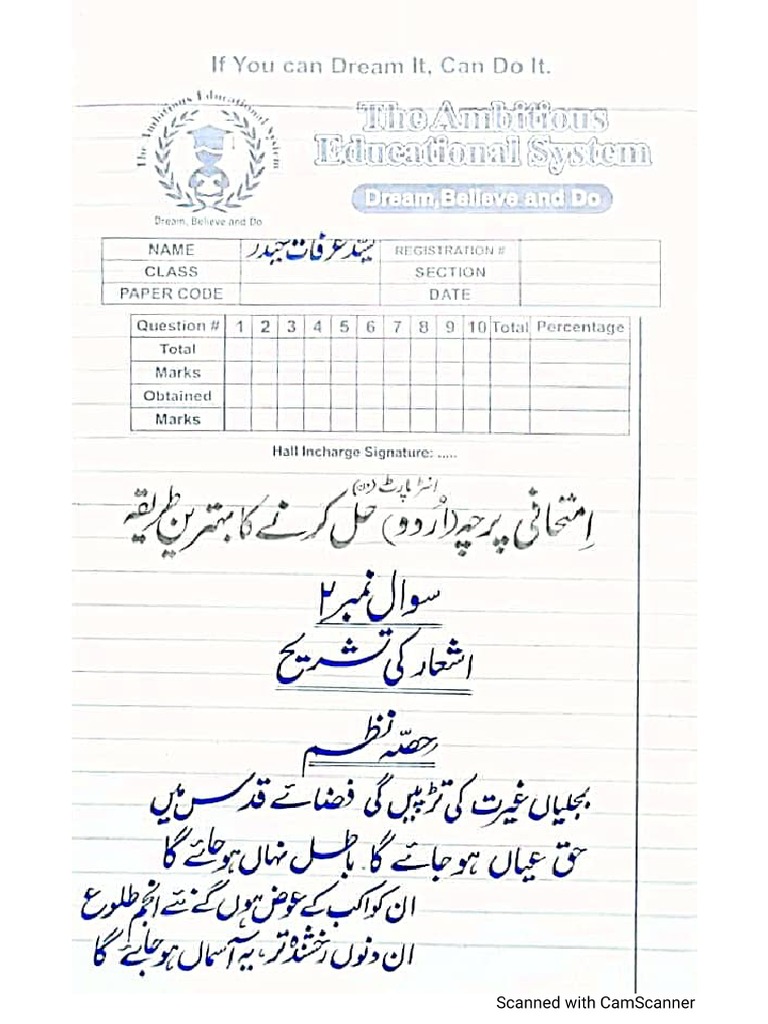 If You can Dream It, Can Do It.
The Ambitious Educational System
The Ambitious
Educational System
Dream, Believe and Do
Dream, Believe and Do
NAME سید عرفات حیدر REGISTRATION #
CLASS SECTION
PAPER CODE DATE
Question # 1 2 3 4 5 6 7 8 9 10 Total Percentage
Total
Marks
Obtained
Marks
Hall Incharge Signature: .....
انٹر پارٹ (ون)
اِمتحانی پرچہ (اُردو) حل کرنے کا بہترین طریقہ
سوال نمبر ۲
اشعار کی تشریح
حصّہ نظم
بجلیاں غیرت کی تڑپیں گی فضائے قدس میں
حق عیاں ہو جائے گا باطل نہاں ہو جائے گا
ان کواکب کے عوض ہوں گے نئے انجم طلوع
ان دنوں رخشندہ تر، یہ آسماں ہو جائے گا
Scanned with CamScanner